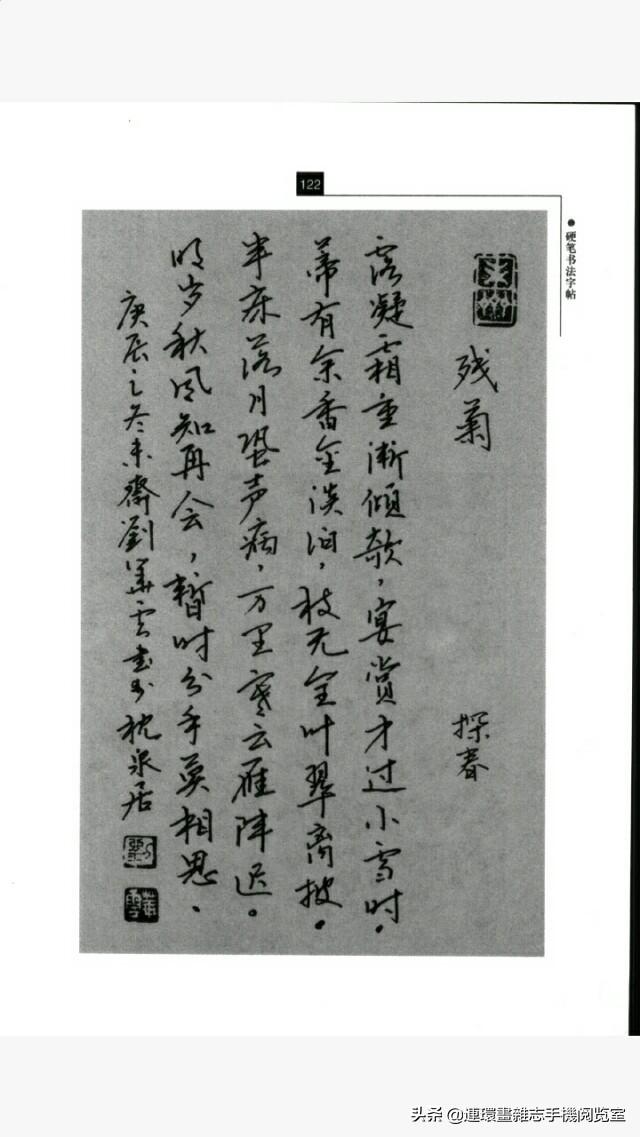 122
●硬笔书法字帖
未齋
残菊 探春
露凝霜重渐倾欹，宴赏才过小雪时。
蒂有余香金淡泊，枝无全叶翠离披。
半床落月蛩声病，万里寒云雁阵迟。
明岁秋风知再会，暂时分手莫相思、
庚辰之冬未齋劉華云书于枕泉居
劉
華雲
头条 @連環畫雜志手機阅览室